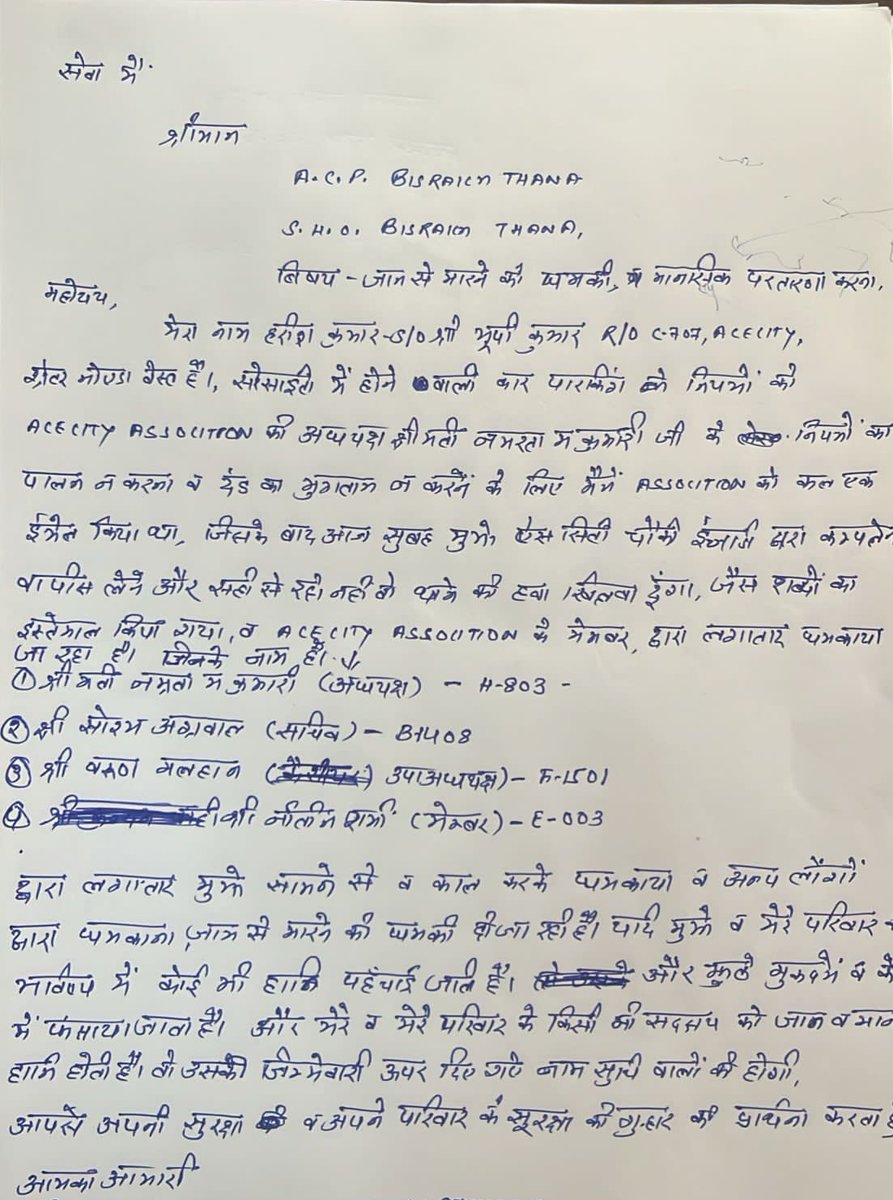 सेवा में
श्रीमान
A.C.P. BISRAICH THANA
S.H.O. BISRAICH THANA,
बिषय - जान से मारने की धमकी, व मानसिक परतारणा करना,
महोदय,
मेरा नाम हरीश कुमार S/O श्री भूपी कुमार R/O C-707, ACECITY,
ग्रेटर नोएडा वेस्ट है।, सोसाइटी में होने वाली कार पारकिंग के नियमों को
ACECITY ASSOCITION की अध्यक्ष श्री मती नमरता म कुमारी जी के नियमों का
पालन न करना व दंड का भुगतान न करनें के लिए मैनें ASSOCITION को कल एक
ईमेल किया था, जिसके बाद आज सुबह मुझे ऐस सिटी चौकी इंचार्ज द्वारा कम्पलेन
वापीस लेने और सही से रहो नही तो थाने की हवा खिलवा दुंगा, जैस शब्दों का
इस्तेमाल किया गया, व ACECITY ASSOCITION के मेमबर, द्वारा लगातार धमकाया
जा रहा है। जिनके नाम है।
① श्री मती नम्रता म कुमारी (अध्यक्ष) - H-803 -
② श्री सोरभ अग्रवाल (सचिव) - B-1408
③ श्री वरुण मलहान उपाअध्यक्ष) - F-1501
④ श्री नीतिन शर्मा (मेम्बर) - E-003
द्वारा लगातार मुझे सामने से व काल करके धमकाया व अन्य लोंगों
द्वारा धमकाना, जान से मारने की धमकी दी जा रही है। यदि मुझे व मेरे परिवार
भविष्य में कोई भी हानि पहुँचाई जाती है। और झुठे मुकदमें व के
में फंसाया जाता है। और मेरे व मेरे परिवार के किसी भी सदस्य को जान व मान
हानि होती है। तो उसकी जिम्मेवारी ऊपर दिए गऐ नाम सुचि वालों की होगी,
आपसे अपनी सुरक्षा व अपने परिवार के सूरक्षा की गुहार की प्रार्थना करता
आपका आभारी